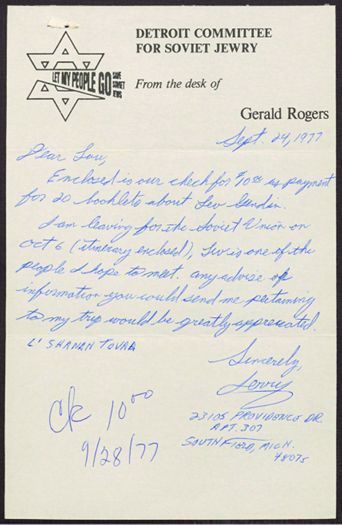 DETROIT COMMITTEE
FOR SOVIET JEWRY
LET MY PEOPLE GO SAVE SOVIET JEWS
From the desk of
Gerald Rogers
Sept. 24, 1977
Dear Lou,
Enclosed is our check for $10.00 as payment
for 20 booklets about Lev Gendin.
I am leaving for the Soviet Union on
Oct 6 (itinerary enclosed), Lev is one of the
people I hope to meet. Any advise or
information you could send me pertaining
to my trip would be greatly appreciated.
L' SHANAH TOVAH
Sincerely,
Jerry
23105 PROVIDENCE DR.
APT. 307
SOUTHFIELD, MICH.
48075
Ck 10.00
9/28/77